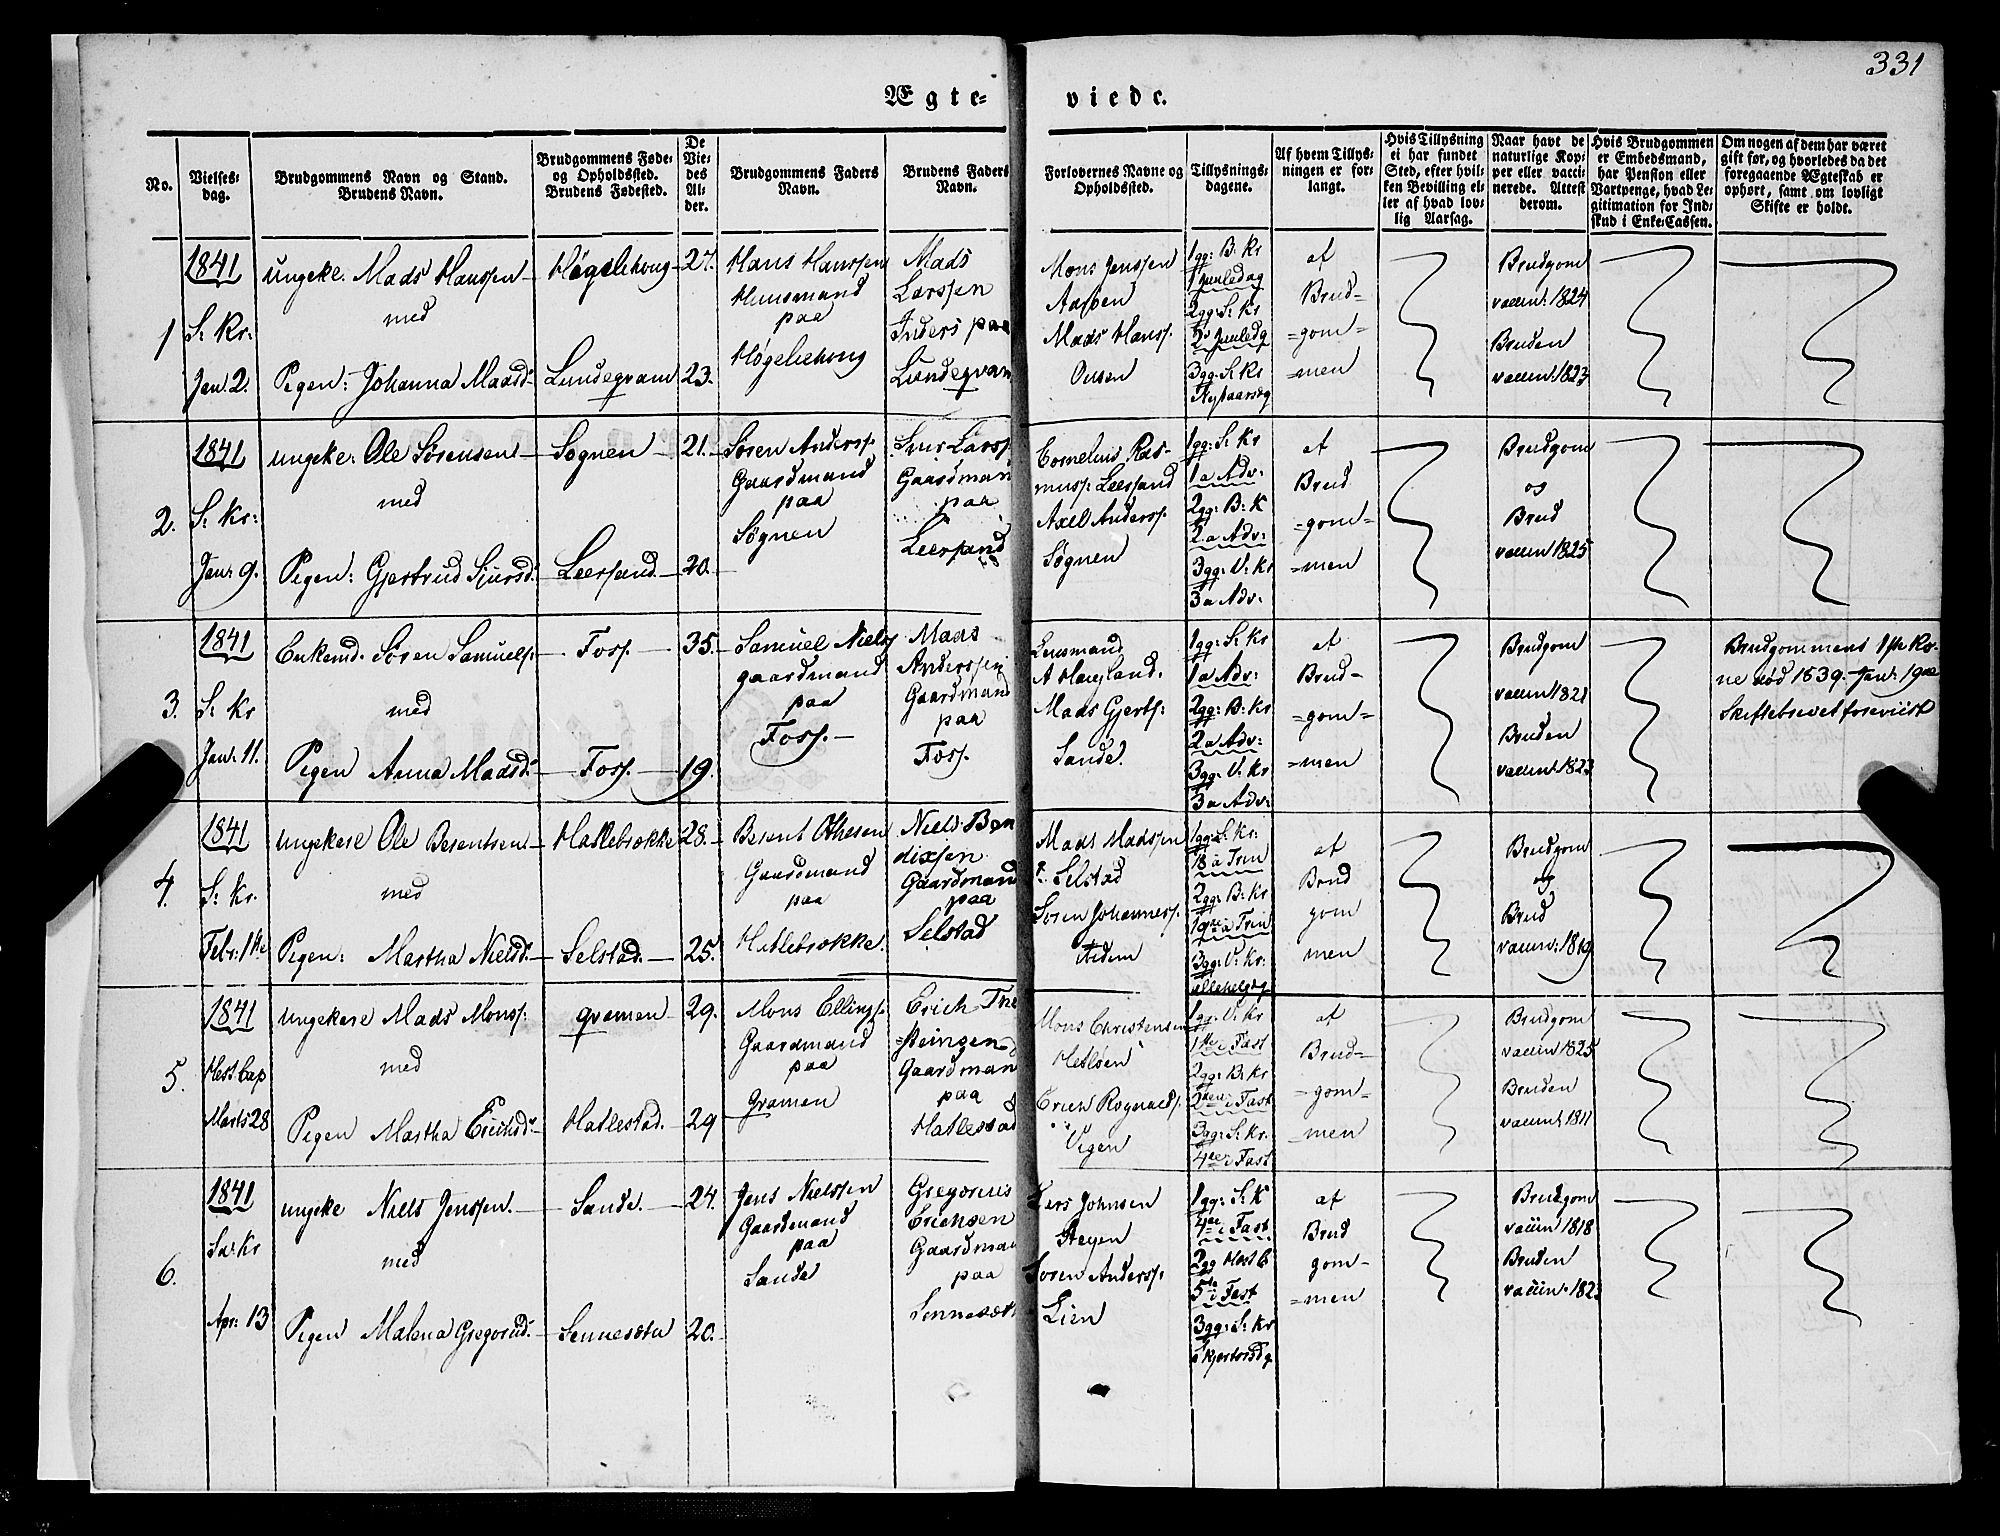 331
Ægte-
viede.
No.
Vielses-
dag.
Brudgommens Navn og Stand.
Brudens Navn.
Brudgommens Føde-
og Opholdssted.
Brudens Fødested.
De
Vie-
des
Al-
der.
Brudgommens Faders
Navn.
Brudens Faders
Navn.
Forlovernes Navne og
Opholdssted.
Tillysnings-
dagene.
Af hvem Tillys-
ningen er for-
langt.
Hvis Tillysning
ei har fundet
Sted, efter hvil-
ken Bevilling el-
ler af hvad lov-
lig Aarsag.
Naar havt de
naturlige Kop-
per eller vacci-
nerede. Attest
derom.
Hvis Brudgommen
er Embedsmand,
har Pension eller
Vartpenge, hvad Le-
gitimation for Ind-
skud i Enke-Cassen.
Om nogen af dem har været
gift før, og hvorledes da det
foregaaende Ægteskab er
ophørt, samt om lovligt
Skifte er holdt.
1
1841
S: Kr:
Jan: 2.
ungeke: Mads Hanssen
med
Pegen: Johanna Maasd:
Høgelihoug
Lundeqvam
27.
23.
Hans Hanssen
Huusmand
paa
Høgeliehoug
Mads
Larssen
Inders paa
Lundeqvam
Mons Jenssen
Mads Hanss.
1 gg: B: Kr
1 Juuledag
2 gg: S: Kr
2 Juuledg
3 gg: S: Kr
Nytaarsdg
af
Brud-
=gom=
=men
Brudgom
vaccin: 1824
Bruden
vaccin: 1823
2.
1841
S: Kr:
Jan: 9.
ungeke: Ole Sørensen
med
Pegen: Gjertrud Sjursd:
Søgnen
Leersand
21.
20.
Søren Anderss.
Gaardmand
paa
Søgnen
Siur Larss.
Gaardman
paa
Leersand
Cornelius Ras-
muss. Leersand
Axel Anderss.
Søgnen
1 gg: S: Kr
1 a Adv:
2 gg: B: K
2 a Adv:
3 gg: V: Kr
3 a Adv:
af
Brud
=gom=
=men
Brudgom
og
Brud
vaccin 1825
3.
1841
S: Kr
Jan: 11.
Enkemd. Søren Samuels.
med
Pegen Anna Maasd:
Foss.
Foss.
35.
19.
Samuel Nielss
gaardmand
paa
Foss.
Mads
Anderssen
Gaardmand
paa
Foss.
Lensmand
A Haugland.
Mads Gjerts.
Sande.
1 gg: S: Kr
1 a Adv:
2 gg: B: Kr
2 a Adv:
3 gg: V: Kr
3 a Adv:
af
Brud-
=gom=
=men
Brudgom
vaccin 1821
Bruden
vaccin: 1823
Brudgommens 1ste Ko-
ne død 1839. Jan: 19de
Skiftebrevet foreviist
4.
1841
S: Kr.
Febr: 1ste
ungekere Ole Berentsen
med
Pegen: Martha Nielsd:
Hatlebrække
Selstad.
28.
25.
Berent Olhesen
Gaardmand
paa
Hatlebrække.
Niels Ben
dixsen
Gaardmand
paa
Selstad
Mads Madssen
Selstad
Søren Johanness.
1 gg: S: Kr:
18 a Trin
2 gg: B: Kr
19de a Trin
3 gg: V: Kr:
allehelgdg
af
Brud
gom
men
Brudgom
og
Brud
vaccin: 1819
5.
1841
Hest Cap
Marts 28
ungekere Mads Monss:
med
Pegen Martha Erichsd:
qvamen
Hatlestad.
29.
29
Mons Ellings.
Gaardmand
paa
Qvamen
Erich The
=steinsen
Gaardman
paa
Hatlestad
Mons Christensen
Hetleøen
Erich Rognalds.
Vigen
1 gg: V: Kr
1ste i Fast
2 gg: B: Kr
2den i Fast
3 gg: S: Kr.
4de i Fast
af
Brud=
=gom=
=men
Brudgom
vaccin 1825
Bruden
vaccin: 1811
6.
1841
Sa: Kr
Apr: 13
ungeke Niels Jenssen.
med
Pegen Malena Gregorid:
Sande.
Sennesæta
24.
20.
Jens Nielssen
Gaardmand
paa
Sande
Gregorius
Erichsen
Gaardman
paa
Sennesæt
Pers Johnsen
Steyen
Søren Anderss.
Lien
1 gg: S: K
4de i Fast
2 gg Hest C
5te i Fast
3 gg: S: Kr
skjertorsdg
af
Brud
gom-
=men
Brudgom
vaccin 1818
Bruden
vaccin. 1823